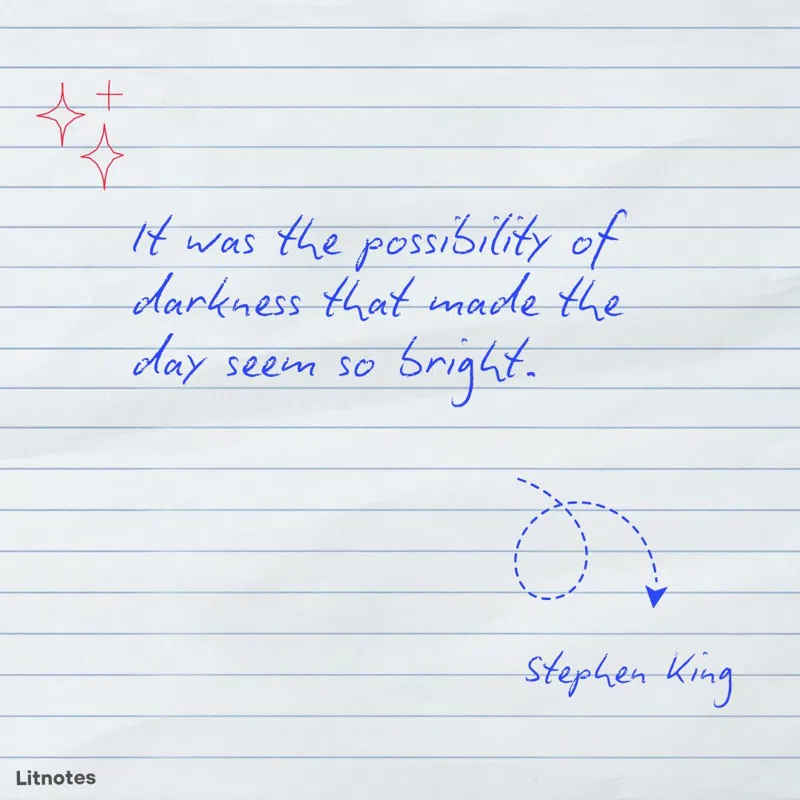 It was the possibility of
darkness that made the
day seem so bright.
Stephen King
Litnotes